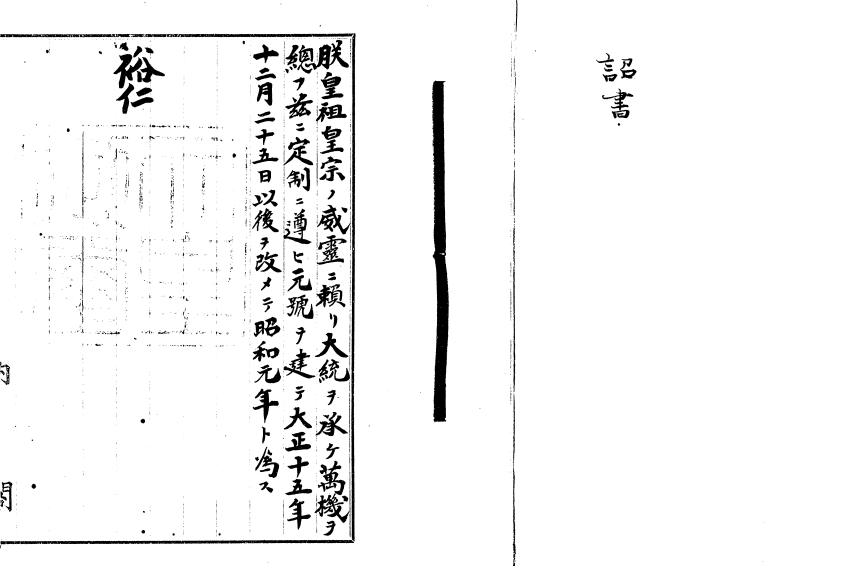 詔書
朕皇祖皇宗ノ威靈ニ賴リ大統ヲ承ケ萬機ヲ
總フ茲ニ定制ニ遵ヒ元號ヲ建テ大正十五年
十二月二十五日以後ヲ改メテ昭和元年ト爲ス
裕仁
閣